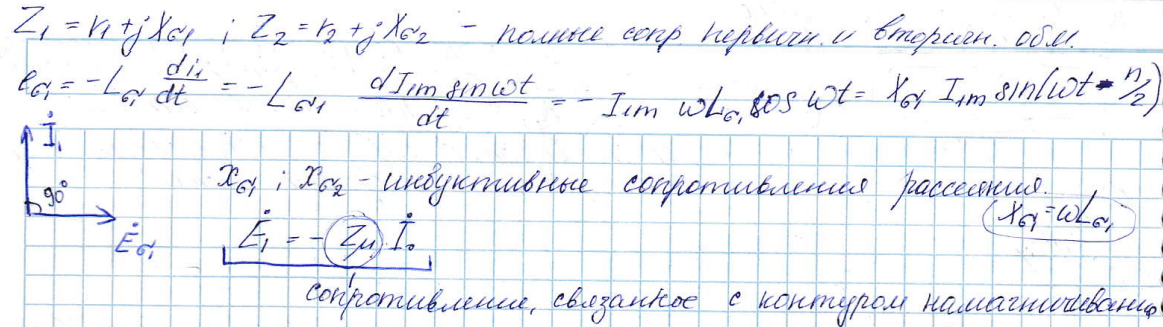 Z₁ = r₁ + jXσ₁ ; Z₂ = r₂ + jXσ₂ – полные сопр. первичн. и вторичн. обм.
eσ₁ = -Lσ₁ di₁/dt = -Lσ₁ dI₁m sin ωt/dt = -I₁m ωLσ₁ cos ωt = Xσ₁ I₁m sin(ωt - π/2)
İ₁
90°
Ėσ₁
xσ₁ ; xσ₂ – индуктивные сопротивления рассеяния.
xσ₁ = ωLσ₁
Ė₁ = -Zμ İ₀
сопротивление, связанное с контуром намагничивания